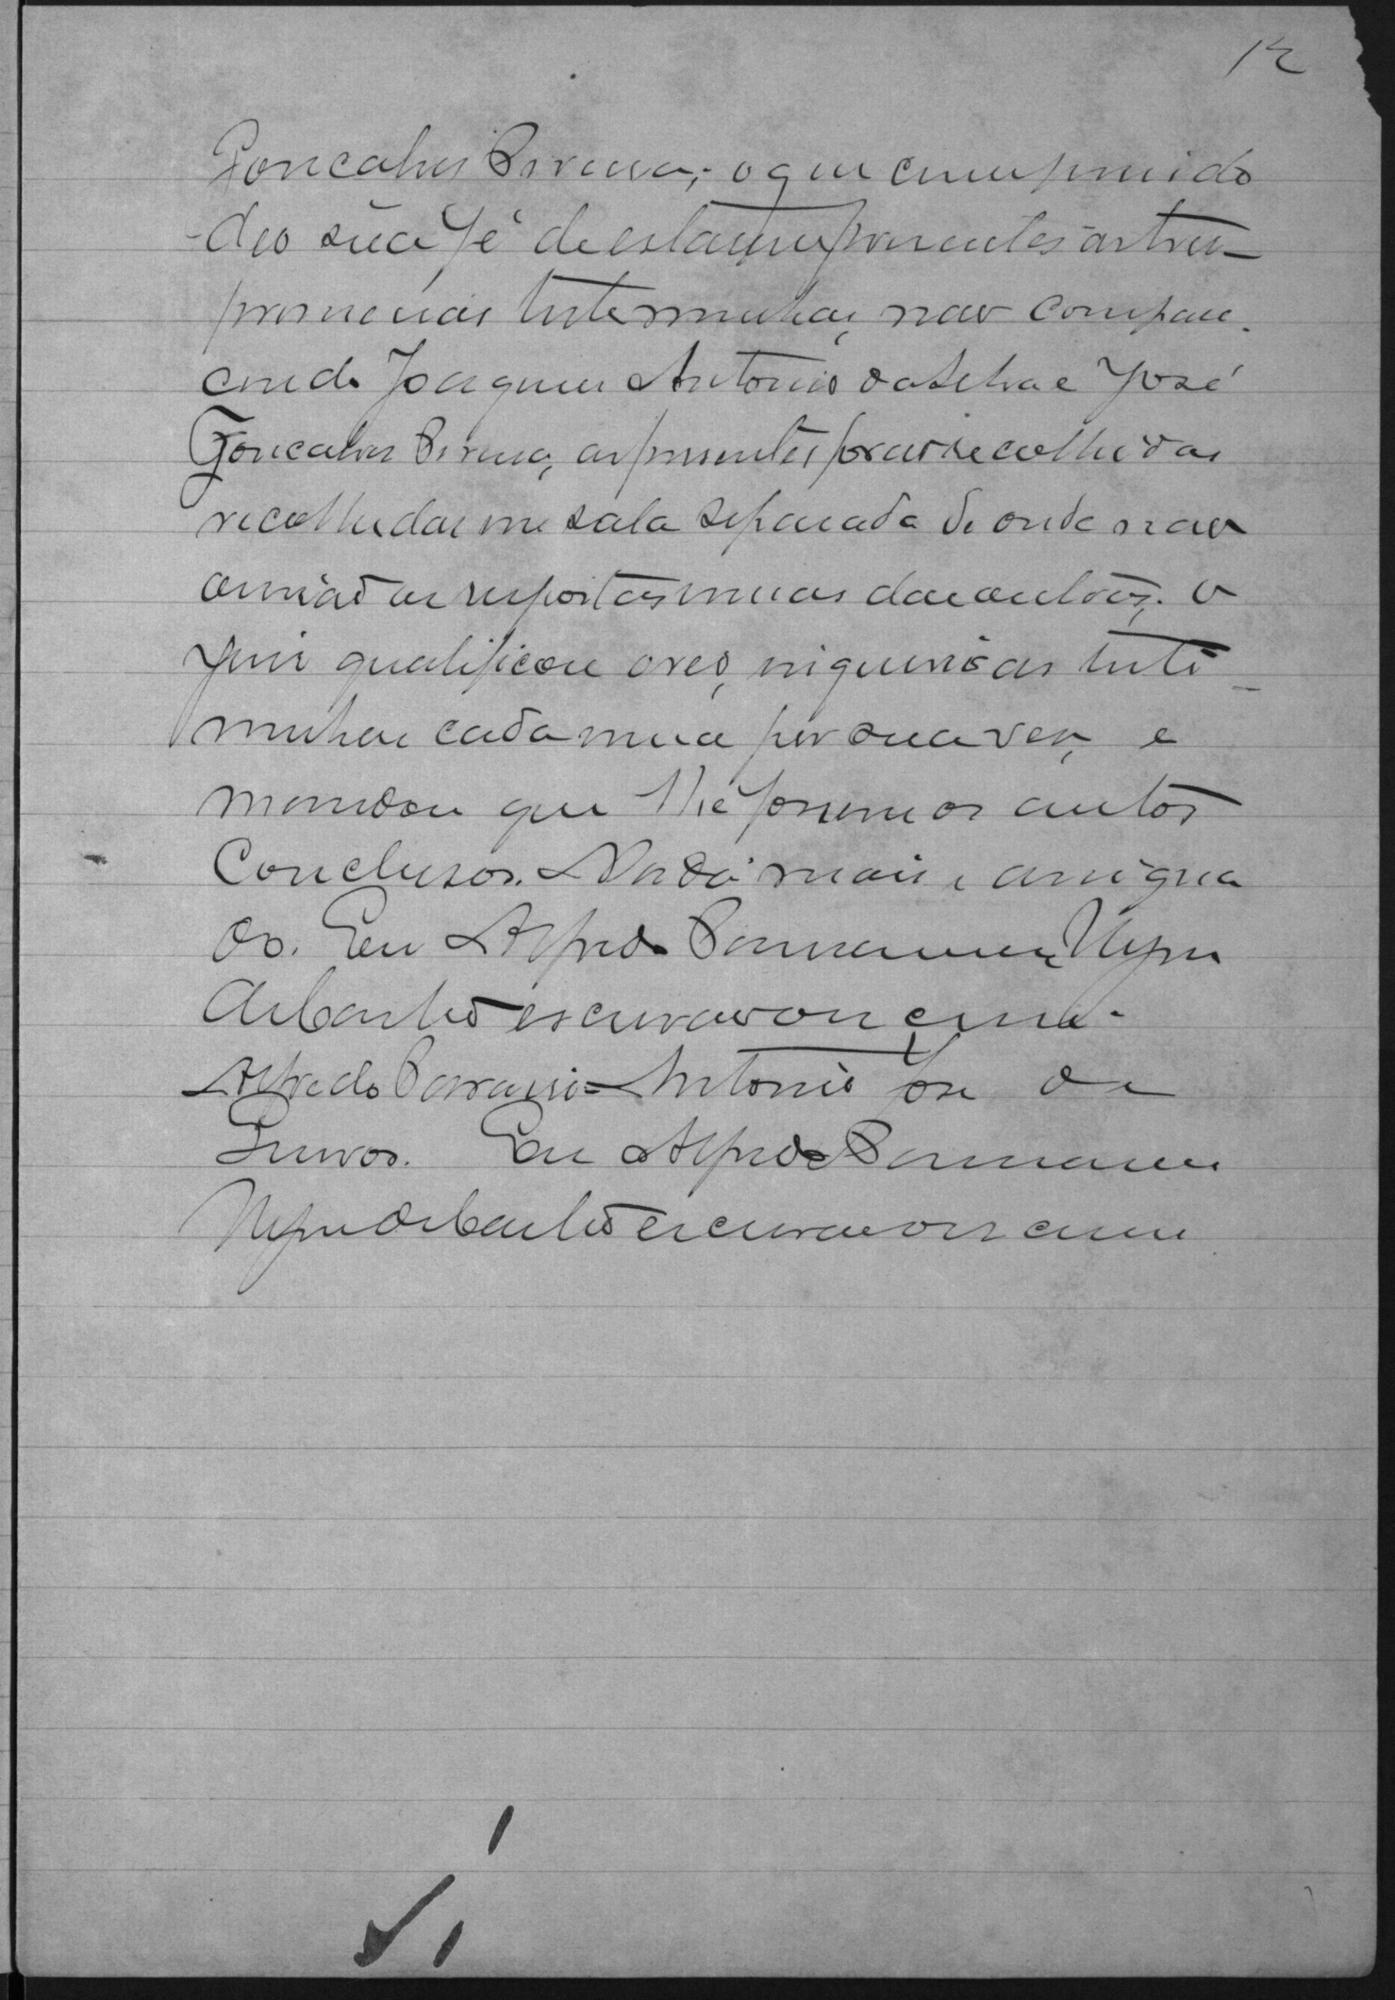 12
Goncalves Pereira; o que cumprindo
deo sua fé de estarem presentes as tres
primeiras testemunhas, nao compare-
cendo Joaquim Antonio da Silva e José
Goncalves Pereira, as presentes forao recolhidas
recolhidas em sala separada de onde nao
ouviao as respostas umas das outras, o
Juiz qualificou o reo, inqueriu as teste-
munhas cada uma por sua vez, e
mandou que lhe fossem os autos
Conclusos. Nada mais e assigna
do. Eu Alfredo
escrivao o escrevi.
Alfredo = Antonio José de
Eu Alfredo
escrivao o escrevi